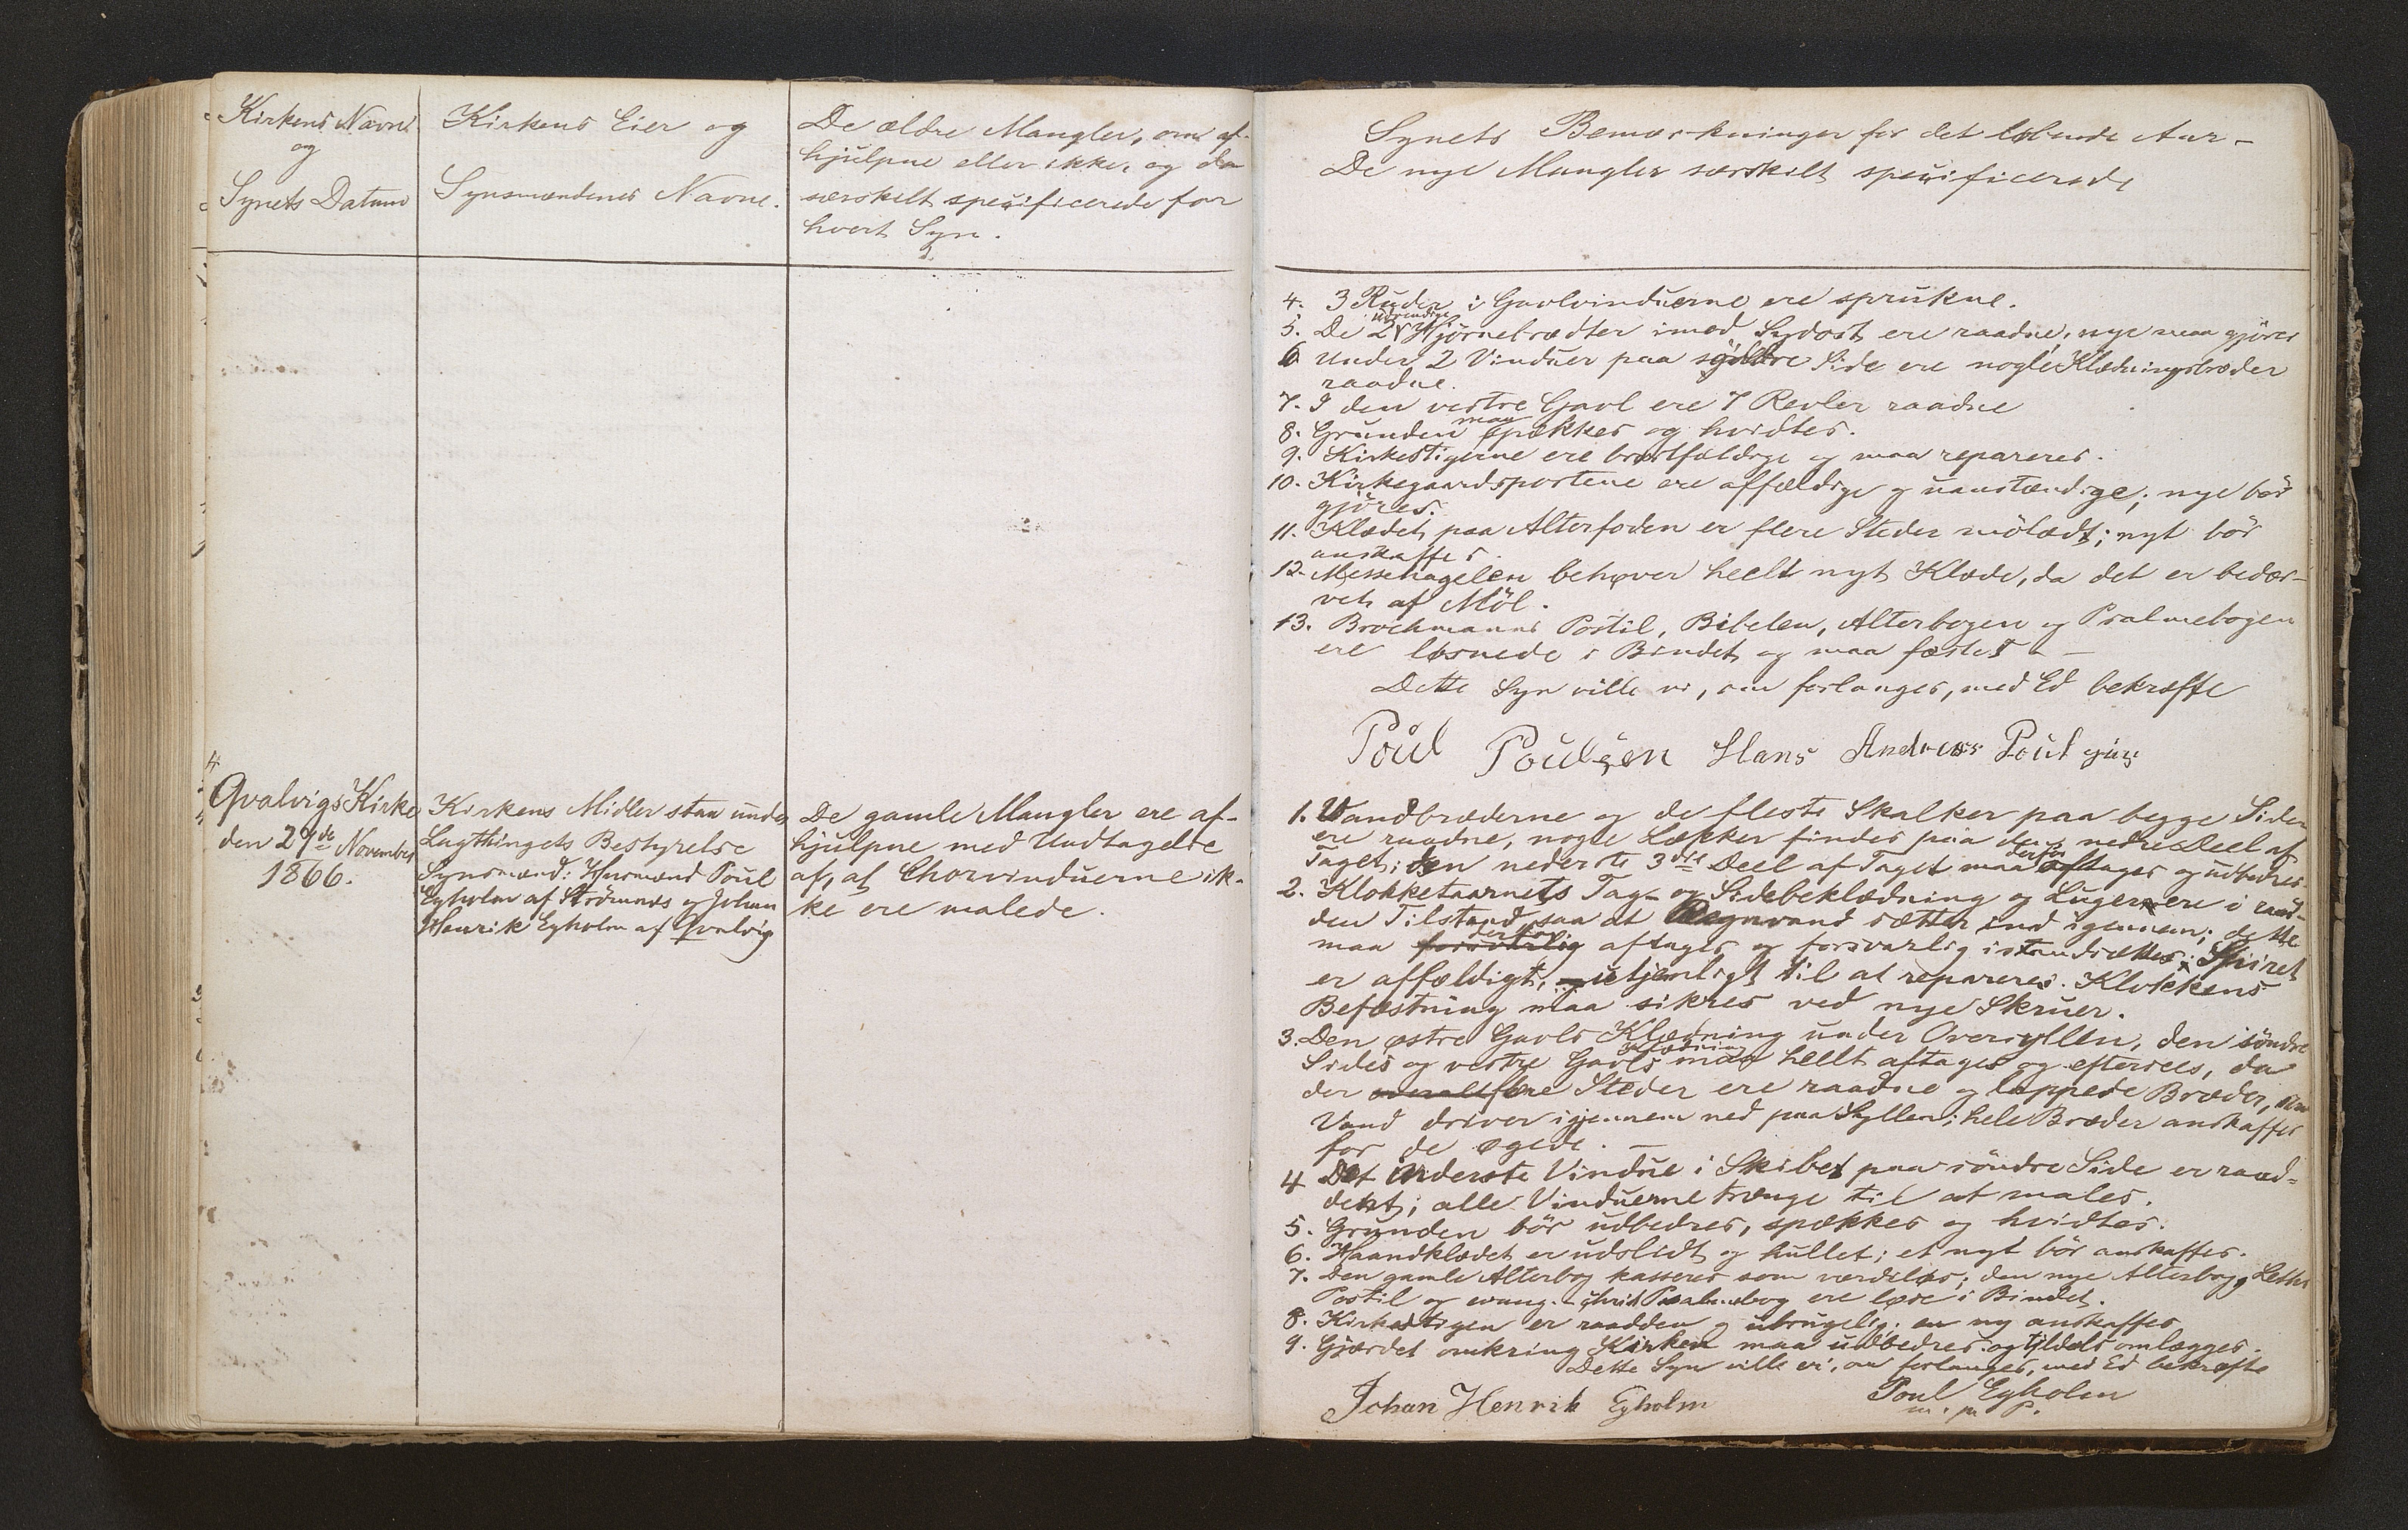 Kirkens Navn
og
Synets Datum
Kirkens Eier og
Synsmændenes Navne.
De ældre Mangler, om af-
hjulpne eller ikke, og da
særskilt specificerede for
hvert Syn.
Qvalvigs Kirke
den 27de November
1866.
Kirkens Midler staa under
Lagthingets Bestyrelse
Synsmænd: Husmand Poul
Egholm af Strömnæs og Johan
Henrik Egholm af Qvalvig
De gamle Mangler ere af-
hjulpne med Undtagelse
af, at Chorvinduerne ik-
ke ere malede.
Synets Bemærkninger for det løbende Aar -
De nye Mangler særskilt specificerede
4. 3 Ruder i Gavlvinduerne ere sprukne.
5. De 2 udvendige Hjørnebrædter imod Sydost ere raadne, nye maa gjöres
6. Under 2 Vinduer paa søndre Side ere nogle Klædningsbræder
raadne.
7. I den vestre Gavl ere 7 Revler raadne
8. Grunden maa spækkes og hvidtes.
9. Kirkestigerne ere bröstfældige og maa repareres.
10. Kirkegaardsportene ere affældige og uanstændige; nye bör
gjöres.
11. Klædet paa Alterfoden er flere Steder mölædt; nyt bör
anskaffes.
12. Messehagelen behøver heelt nyt Klæde, da det er bedær-
vet af Möl.
13. Brochmanns Postil, Bibelen, Alterbogen og Psalmebogen
ere løsnede i Bindet og maa fæstes -
Dette Syn ville vi, om forlanges, med Ed bekræfte
Poul Poulsen Hans Andreas
1. Vandbræderne og de fleste Skalker paa begge Sider
ere raadne, nogle Lækker findes paa den nedre Deel af
Taget; den nederste 3die Deel af Taget maa derfor aftages og udbedres.
2. Klokketaarnets Tag- og Sidebeklædning og Luger ere i raad-
den Tilstand, saa at Regnvand sætter ind igennem; dette
maa derfor aftages og forsvarlig istandsættes; Spiret
er affældigt, utjenligt til at repareres. Klokkens
Befæstning maa sikres ved nye Skruer.
3. Den østre Gavls Klædning under Oversyllen, den söndre
Sides og vestre Gavls Klædning maa heelt aftages og eftersees, da
der flere Steder ere raadne og lappede Bræder, som
Vand driver igjennem ned paa Syllen; hele Bræder anskaffes
for de øgede. -
4 Det inderste Vindue i Skibet paa söndre Side er raad-
dent; alle Vinduerne trænge til at males.
5. Grunden bör udbedres, spækkes og hvidtes.
6. Haandklædet er udslidt og hullet; et nyt bör anskaffes.
7. Den gamle Alterbog kasseres som værdiløs; den nye Alterbog, Leths
Postil og evang. christ. Psalmebog ere løse i Bindet.
8. Kirkestigen er raadden og ubrugelig; en ny anskaffes
9. Gjærdet omkring Kirken maa udbedres og tildels omlægges.
Dette Syn ville vi, om forlanges, med Ed bekræfte
Johan Henrik Egholm
Poul Egholm
m. p. P.